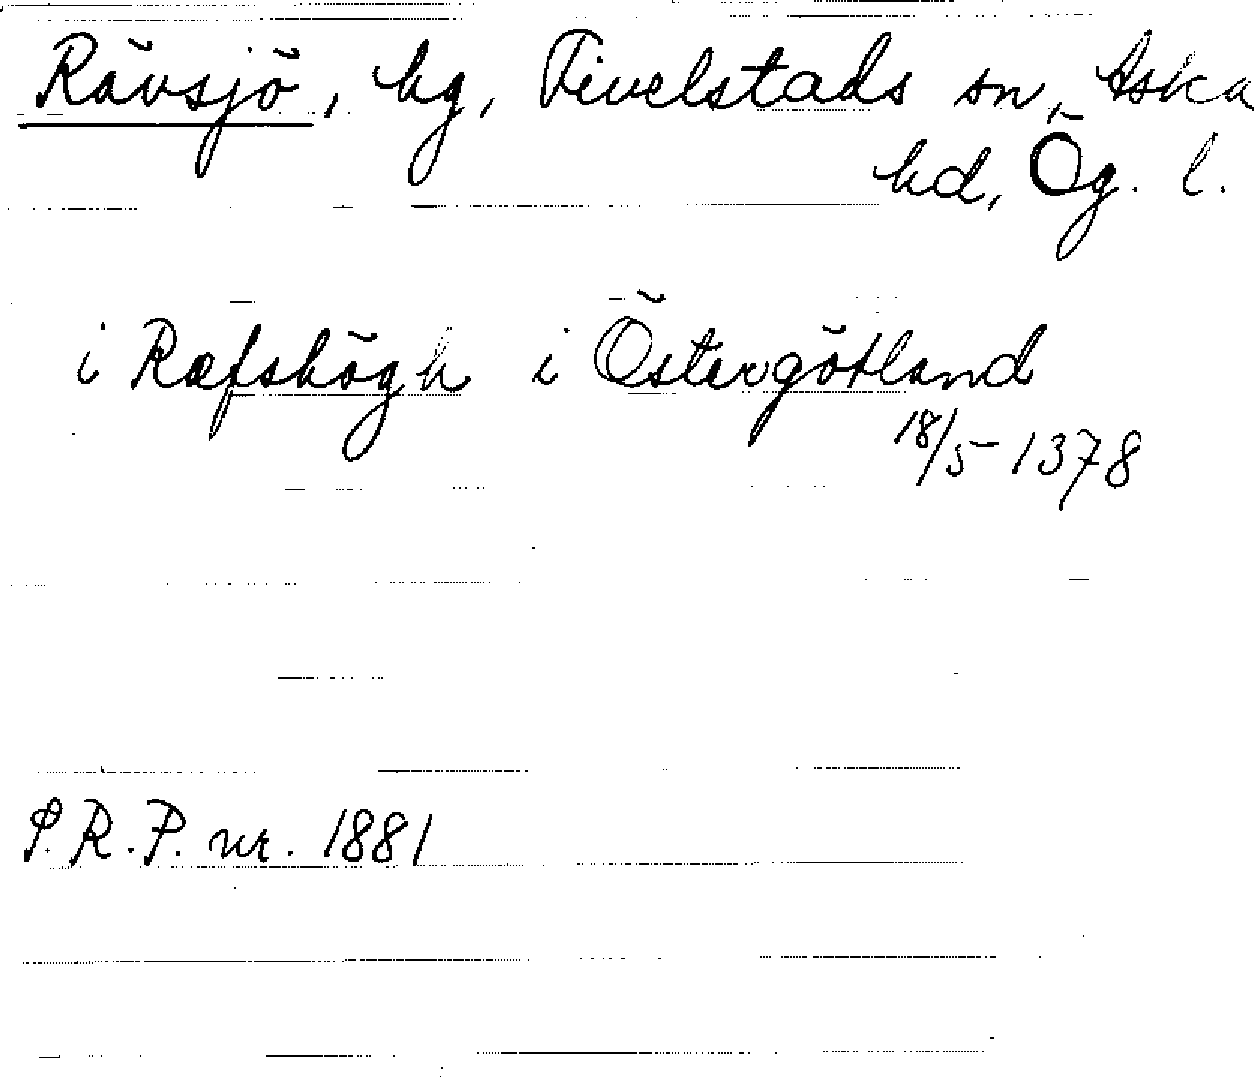 Rävsjö, hg, Fivelstads sn, Aska
hd, Ög. l.
i Ræfshögh i Östergötland
18/5 1378
S.R.P. nr. 1881